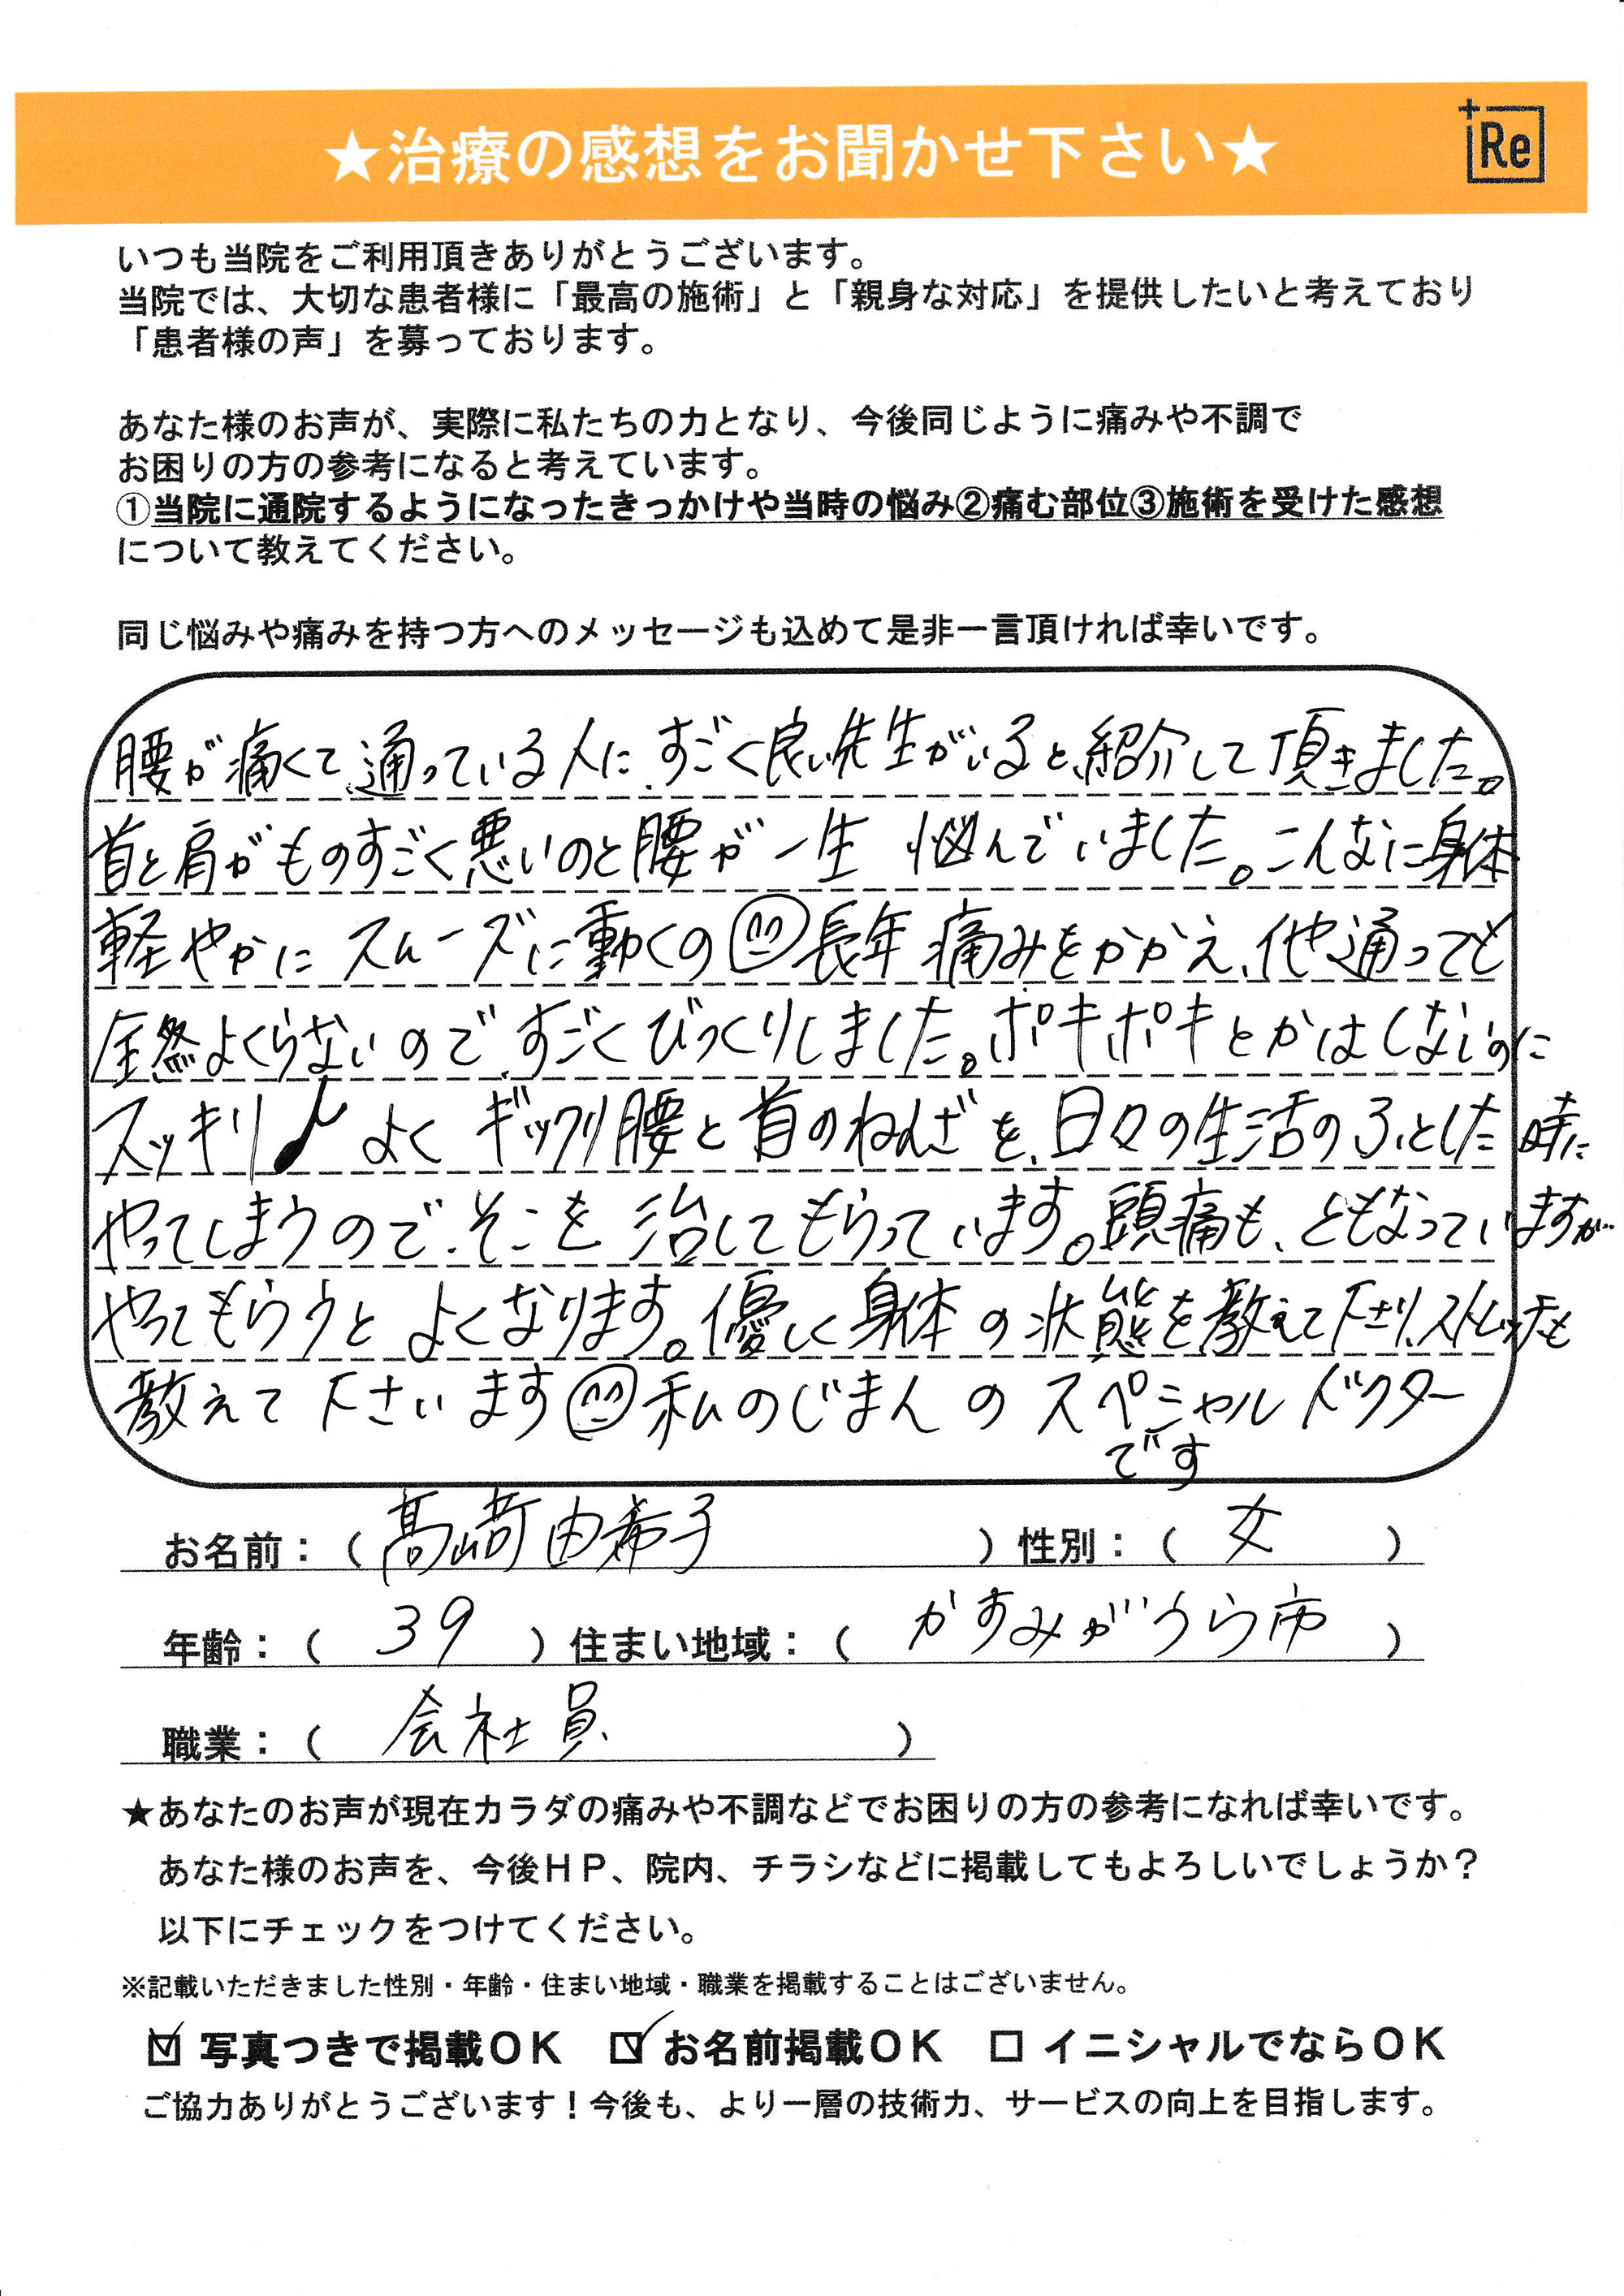 ★治療の感想をお聞かせ下さい★
Re
いつも当院をご利用頂きありがとうございます。
当院では、大切な患者様に「最高の施術」と「親身な対応」を提供したいと考えており
「患者様の声」を募っております。
あなた様のお声が、実際に私たちの力となり、今後同じように痛みや不調で
お困りの方の参考になると考えています。
①当院に通院するようになったきっかけや当時の悩み②痛む部位③施術を受けた感想
について教えてください。
同じ悩みや痛みを持つ方へのメッセージも込めて是非一言頂ければ幸いです。
腰が痛くて、通っている人に、すごく良い先生がいると、紹介して頂きました。
首と肩がものすごく悪いのと腰が一生 悩んでいました。こんなに身体
軽やかに スムーズに動くの 長年 痛みをかかえ、他通っても
全然よくらないので、すごくびっくりしました。ポキポキとかはしないのに
スッキリ♪ よく ギックリ腰と首のねんざを、日々の生活のふとした時に
やってしまうので、そこを 治してもらっています。頭痛も、ともなっていますが
やってもらうと よくなります。優しく身体の状態を教えて下さり、ストレッチも
教えて下さいます 私のじまんのスペシャルドクター
です
お名前：（髙﨑 由希子）性別：（女）
年齢：（39）住まい地域：（かすみがうら市）
職業：（会社員）
★あなたのお声が現在カラダの痛みや不調などでお困りの方の参考になれば幸いです。
あなた様のお声を、今後ＨＰ、院内、チラシなどに掲載してもよろしいでしょうか？
以下にチェックをつけてください。
※記載いただきました性別・年齢・住まい地域・職業を掲載することはございません。
☑ 写真つきで掲載ＯＫ ☑ お名前掲載ＯＫ □ イニシャルでならＯＫ
ご協力ありがとうございます！今後も、より一層の技術力、サービスの向上を目指します。